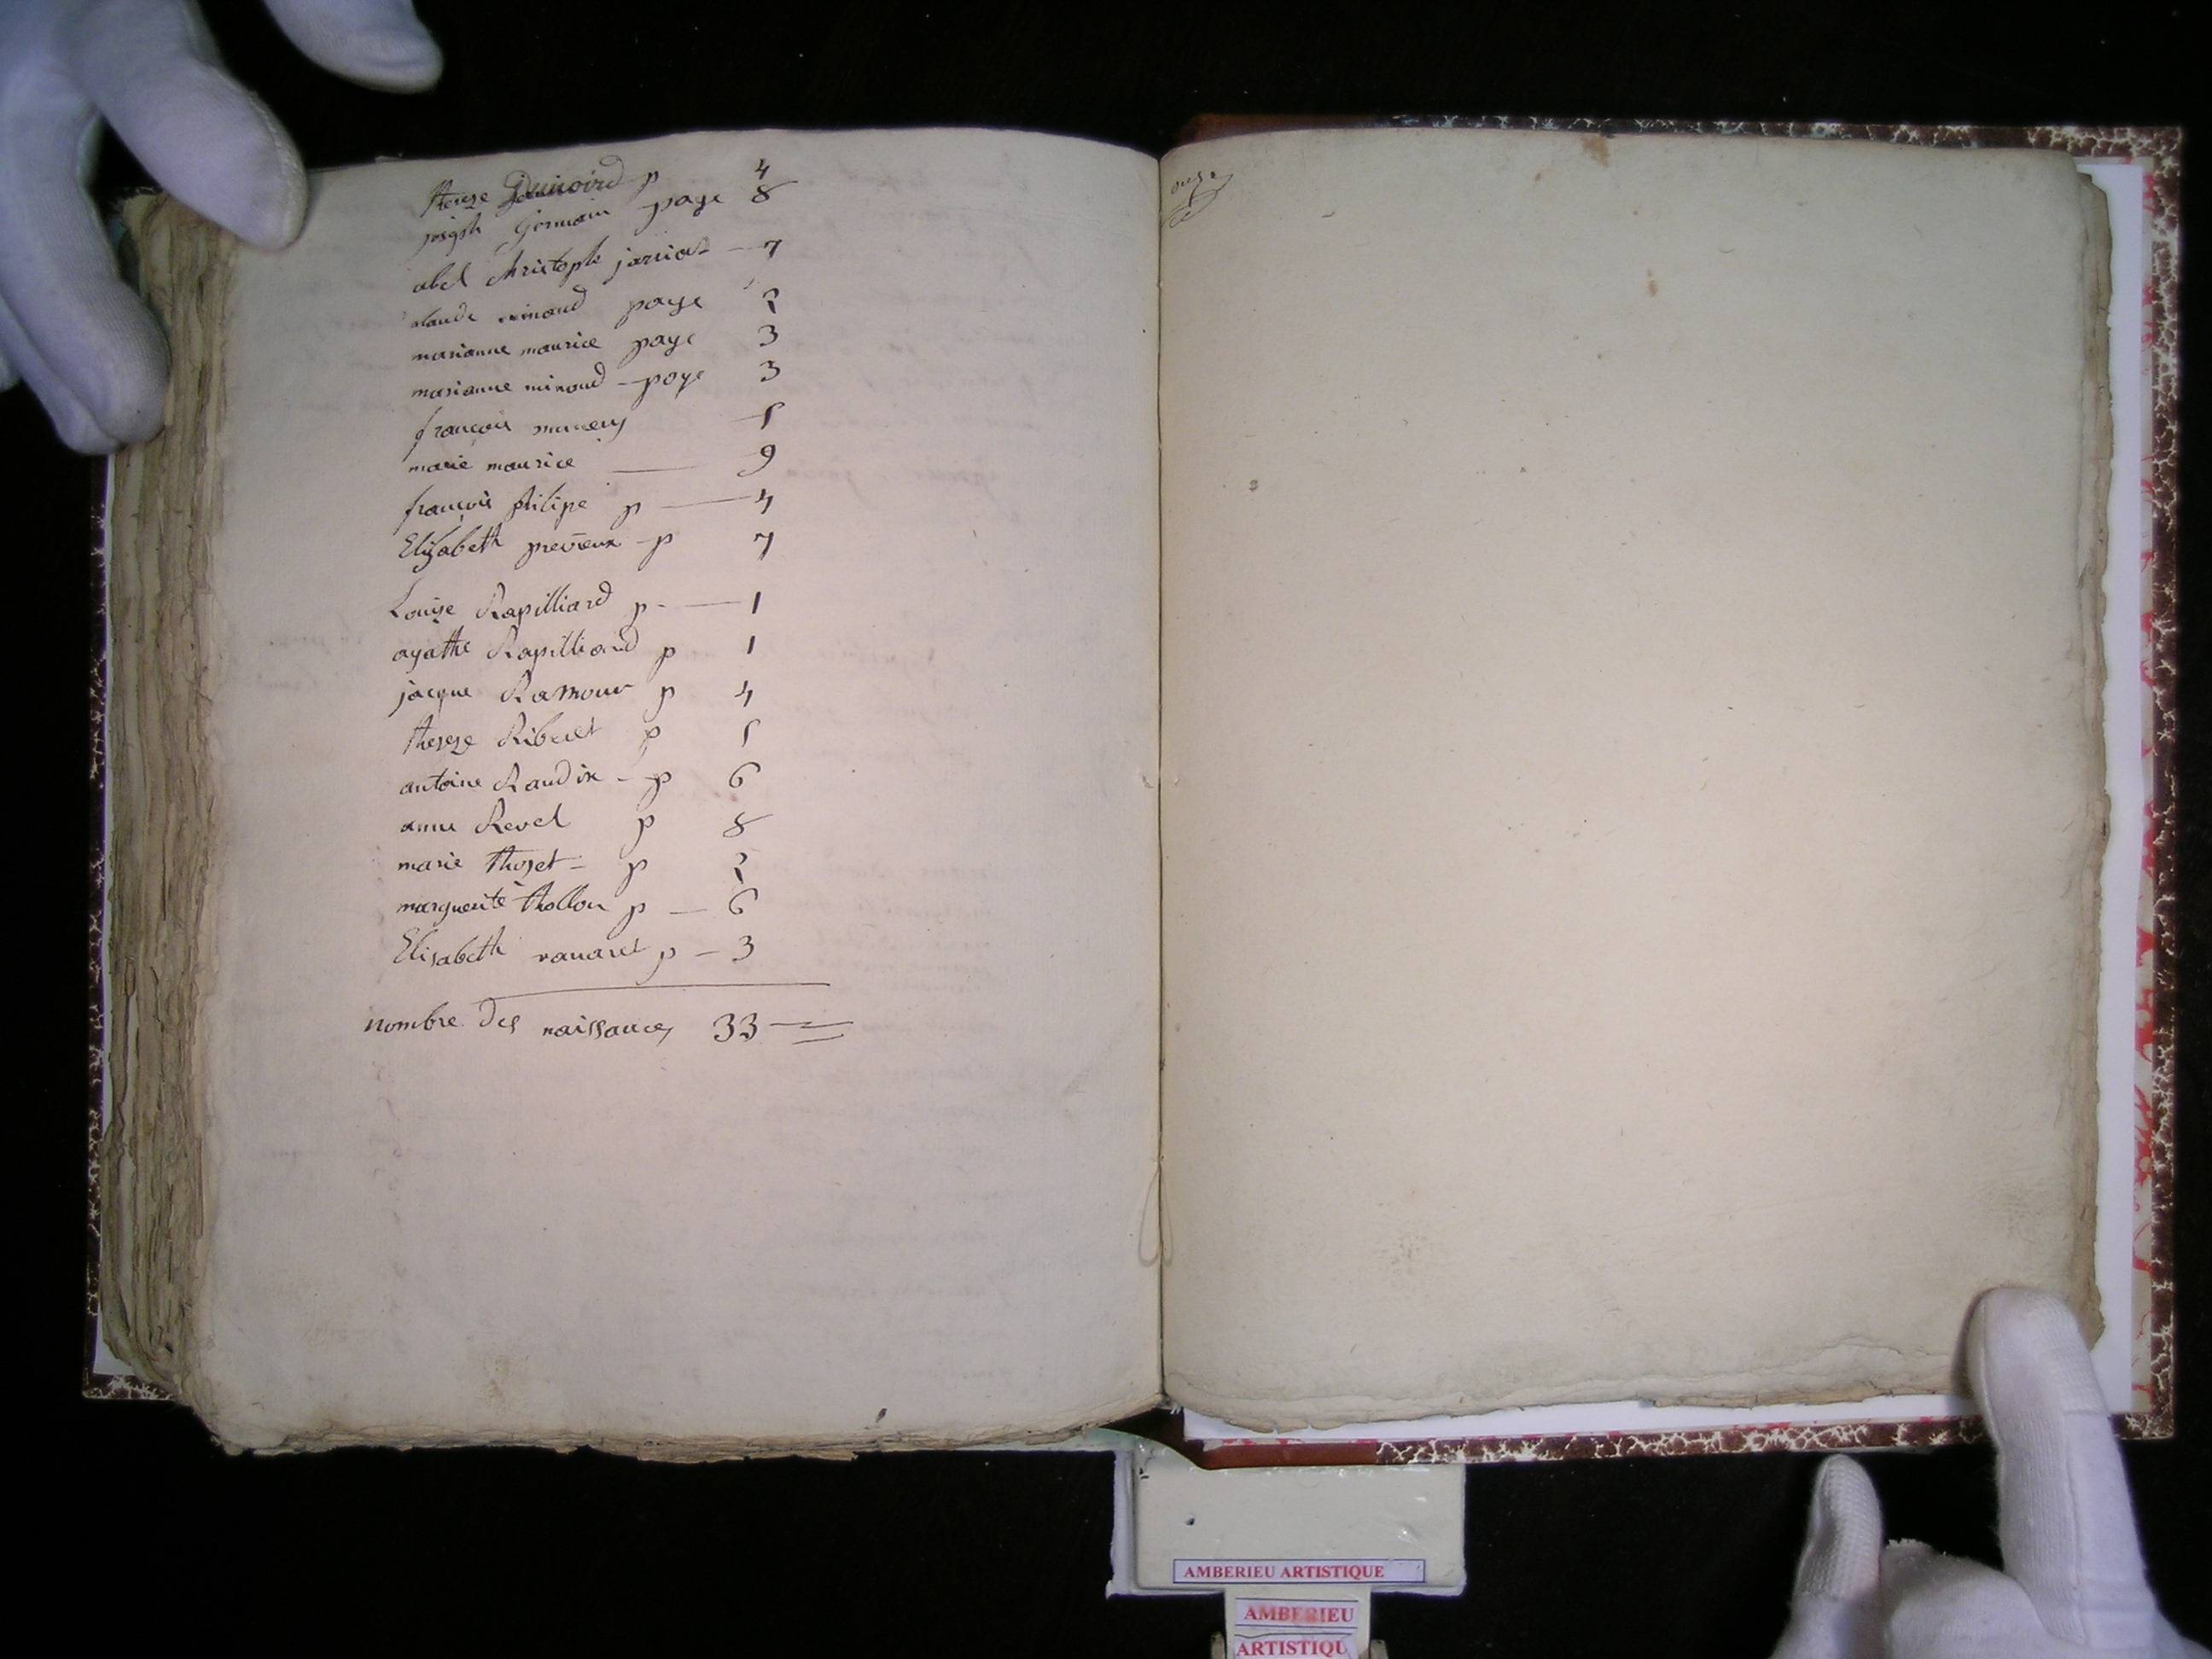 therese p 4
joseph Germain page 8
abel christophe jarriat — 7
claude page 2
marianne maurice page 3
marianne minoud – page 3
françois 5
marie maurice — 9
françois philipe p — 4
Elizabeth previeux – p 7
Louise Rapilliard p. — 1
agathe Rapilliard p 1
jacque Ramour p 4
therese Riberet p 5
antoine Raudix – p 6
anne Revel p 8
marie thozet – p 2
marguerite thollon p — 6
Elisabeth vanaret p – 3
nombre des naissances 33
AMBERIEU ARTISTIQUE
AMBERIEU
ARTISTIQU